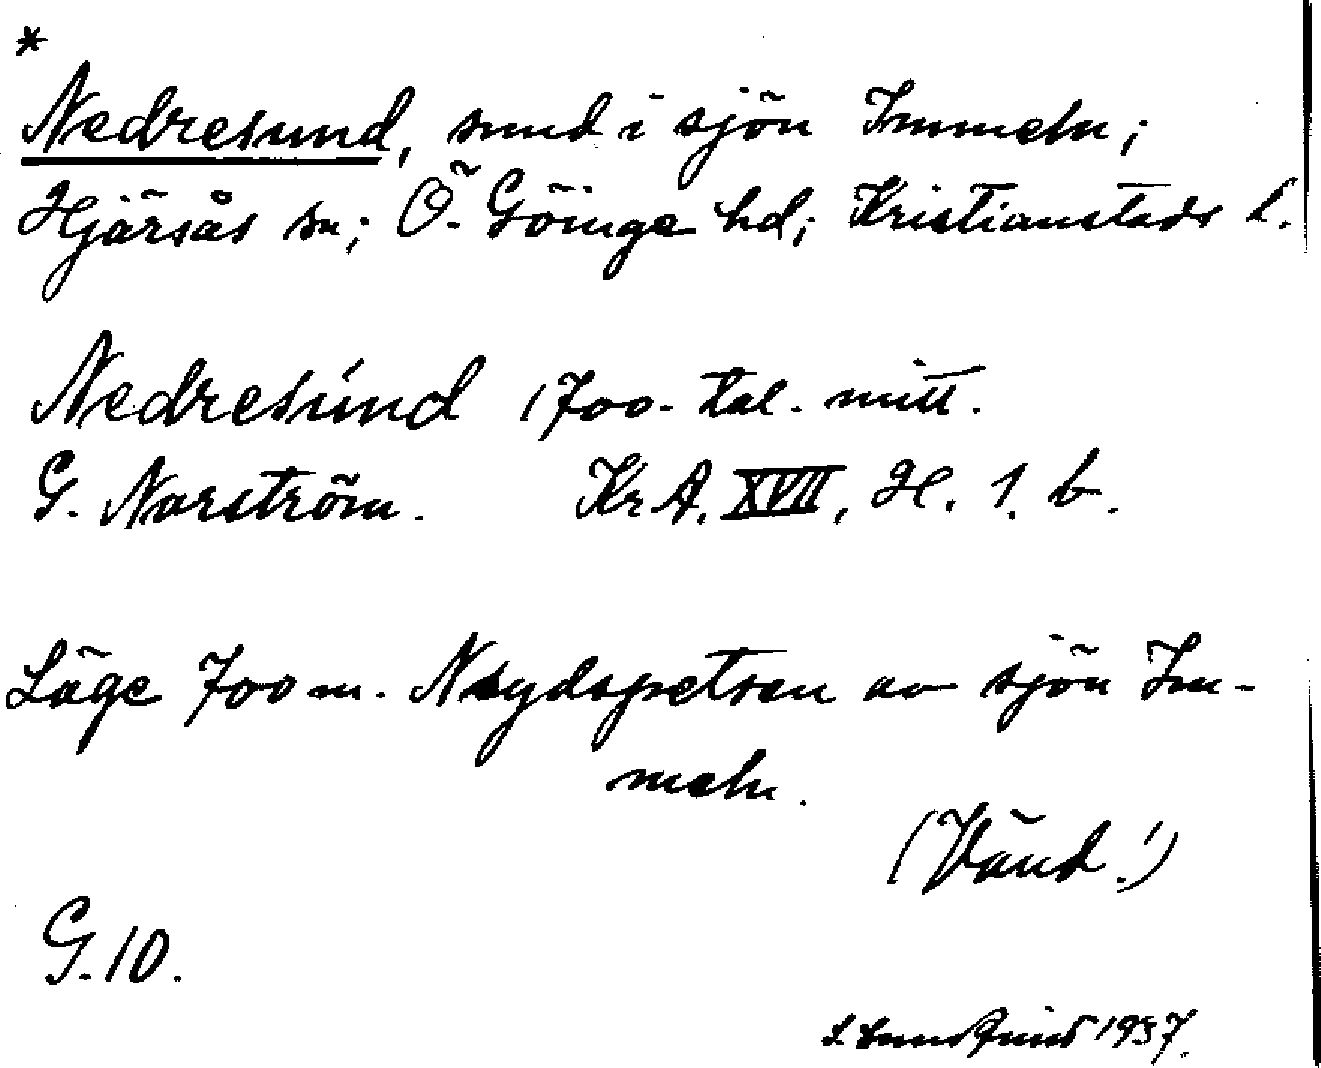 *
Nedresund, sund i sjön Immeln;
Hjärsås sn; Ö. Göinge hd; Kristianstads l.
Nedresúnd 1700-tal. mitt.
G. Norström. Kr.A. XVII, H. 1. b.
Läge 700 m. N sydspetsen av sjön Im-
meln.
(Vänd!)
G. 10.
1937.